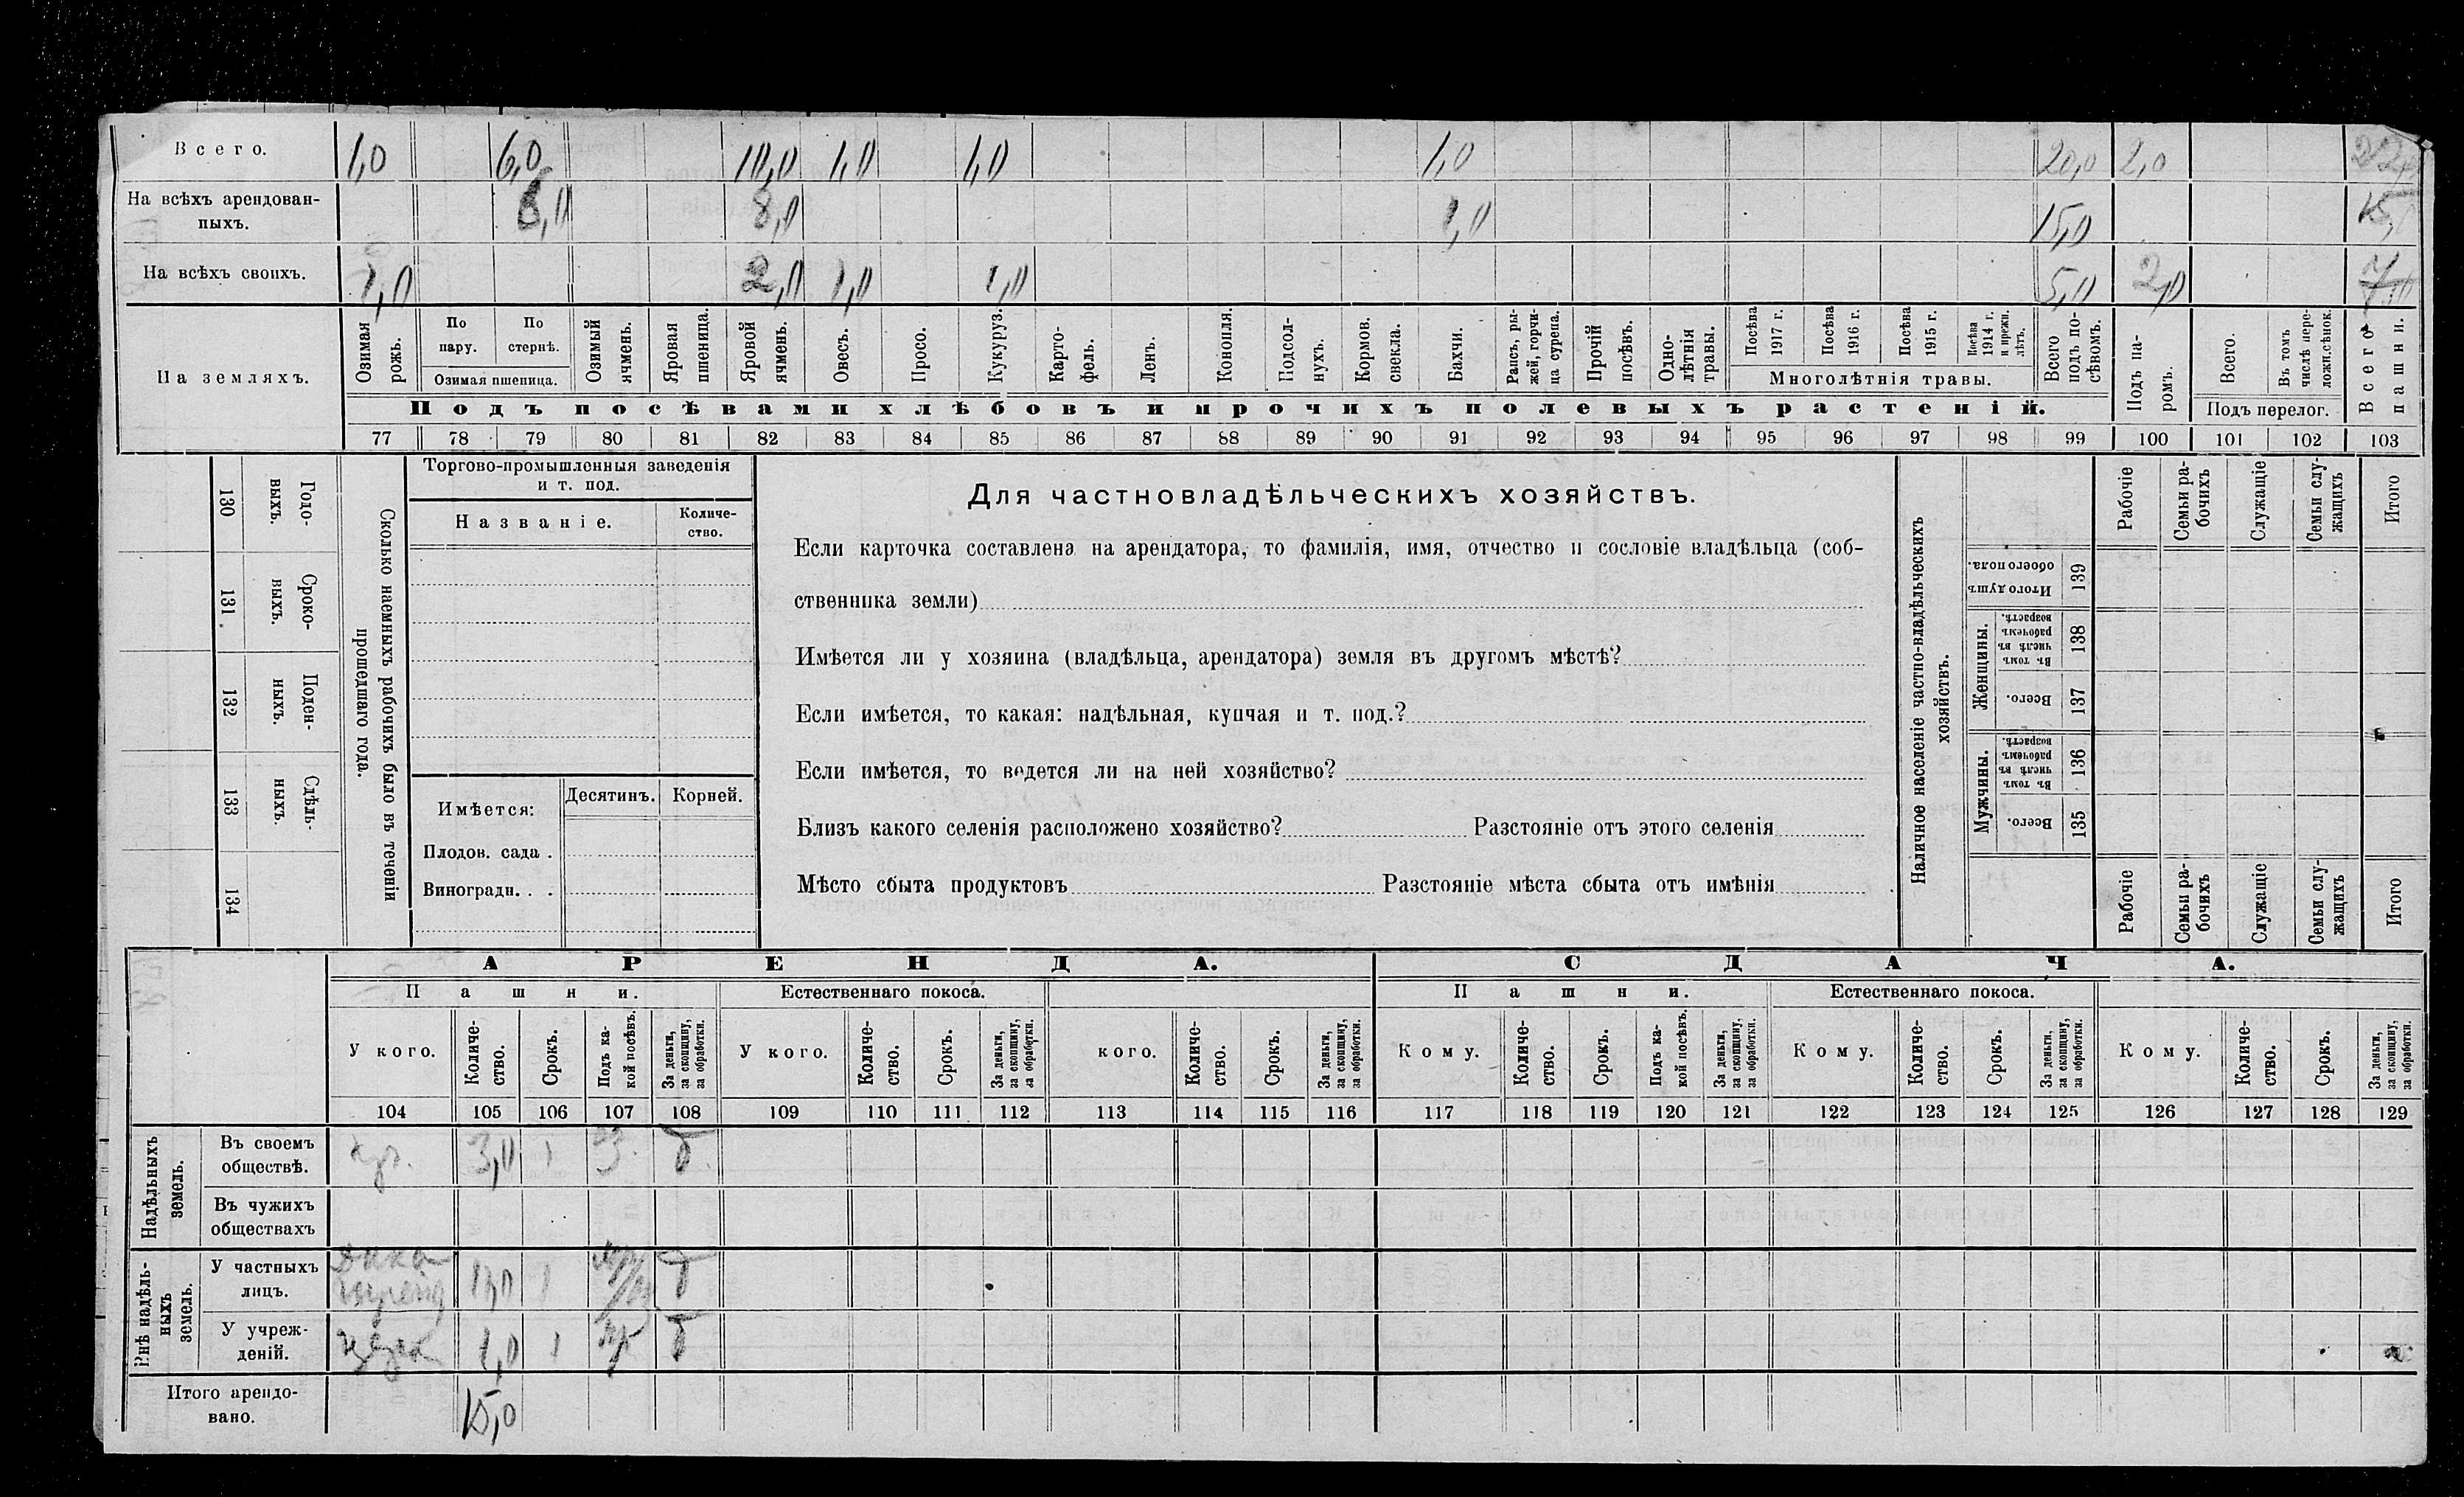 Всего. 1,0 6,0 10,0 1,0 1,0 1,0 20,0 2,0 22,0
На всѣхъ арендован-
ныхъ. 6,0 8,0 1,0 15,0 15,0
На всѣхъ своихъ. 1,0 2,0 1,0 1,0 5,0 2,0 7,0
На земляхъ.
Озимая рожь.
По пару.
По стернѣ.
Озимая пшеница.
Озимый ячмень.
Яровая пшеница.
Яровой ячмень.
Овесъ.
Просо.
Кукуруз.
Карто-
фель.
Ленъ.
Конопля.
Подсол-
нухъ.
Кормов. свекла.
Бахчи.
Рапсъ, ры-
жей, горчи-
ца сурепа.
Прочій посѣвъ.
Одно-
лѣтнія травы.
Посѣва 1917 г.
Посѣва 1916 г.
Посѣва 1915 г.
Посѣва 1914 г. и прежн. лѣтъ.
Многолѣтнія травы.
Всего подъ по-
сѣвомъ.
Подъ па-
ромъ.
Всего.
Въ томъ числѣ пере-
ложн.сѣнок.
Подъ перелог.
Всего пашни.
Подъ посѣвами хлѣбовъ и прочихъ полевыхъ растеній.
77 78 79 80 81 82 83 84 85 86 87 88 89 90 91 92 93 94 95 96 97 98 99 100 101 102 103
130 Годо-
выхъ.
131. Сроко-
выхъ.
132 Поден-
ныхъ.
133 Сдѣль-
ныхъ.
134
Сколько наемныхъ рабочихъ было въ теченіи
прошедшаго года.
Торгово-промышленныя заведенія
и т. под.
Названіе.
Количе-
ство.
Имѣется:
Десятинъ.
Корней.
Плодов. сада .
Виноградн. . .
Для частновладѣльческихъ хозяйствъ.
Если карточка составлена на арендатора, то фамилія, имя, отчество и сословіе владѣльца (соб-
ственника земли)
Имѣется ли у хозяина (владѣльца, арендатора) земля въ другомъ мѣстѣ?
Если имѣется, то какая: надѣльная, купчая и т. под.?
Если имѣется, то ведется ли на ней хозяйство?
Близъ какого селенія расположено хозяйство? Разстояніе отъ этого селенія
Мѣсто сбыта продуктовъ Разстояніе мѣста сбыта отъ имѣнія
Наличное населеніе частно-владѣльческихъ
хозяйствъ.
Рабочіе
Семьи ра-
бочихъ
Служащіе
Семьи слу-
жащихъ
Итого
Итого душъ обоего пола. 139
Женщины.
Въ томъ числѣ въ рабочемъ возрастѣ. 138
Всего. 137
Мужчины.
Въ томъ числѣ въ рабочемъ возрастѣ. 136
Всего. 135
Рабочіе
Семьи ра-
бочихъ
Служащіе
Семьи слу-
жащихъ
Итого
АРЕНДА.
СДАЧА.
Пашни.
Естественнаго покоса.
Пашни.
Естественнаго покоса.
У кого.
Количе-
ство.
Срокъ.
Подъ ка-
кой посѣвъ.
За деньги, за скопщину, за обработки.
У кого.
Количе-
ство.
Срокъ.
За деньги, за скопщину, за обработки.
кого.
Количе-
ство.
Срокъ.
За деньги, за скопщину, за обработки.
Кому.
Количе-
ство.
Срокъ.
Подъ ка-
кой посѣвъ.
За деньги, за скопщину, за обработки.
Кому.
Количе-
ство.
Срокъ.
За деньги, за скопщину, за обработки.
Кому.
Количе-
ство.
Срокъ.
За деньги, за скопщину, за обработки.
104 105 106 107 108 109 110 111 112 113 114 115 116 117 118 119 120 121 122 123 124 125 126 127 128 129
Надѣльныхъ
земель.
Въ своемъ
обществѣ. 3,0 1
Въ чужихъ
обществахъ
Внѣ надѣль-
ныхъ
земель.
У частныхъ
лицъ. 1
У учреж-
деній. 1,0 1
Итого арендо-
вано. 15,0